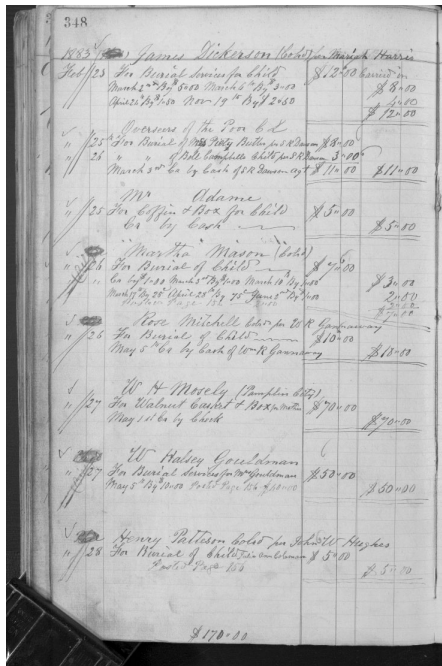 348
1883 James Dickerson (Cold) for Mariah Harris
Feb 23 For Burial Services for Child $12.00 Carried on
March 2nd By $5.00 March 6th By $3.00 $8.00
April 26th By $1.50 Nov 19th By $2.50 4.00
$12.00
Overseers of the Poor C L
" 25 For Burial of Butler for S R $8.00
" 26 " " of Bole Campbells Child for S R 3.00
March 3rd Ca by Cash of S R Dawson agt $11.00 $11.00
Mr Adams
" 25 For Coffin & Box for Child $5.00
Ca by Cash $5.00
"Martha" Mason (Cold)
" 26 For Burial of Child $7.00
Ca by 1.00 March 3rd By 1.00 March 10th By 1.00 $3.00
March 17 By 25 April 28th By 75 June 2nd By 1.00 2.00
Page
$7.00
Rose Mitchell Cold for W R Gannaway
" 26 For Burial of Child $10.00
May 5th Ca by Cash of Wm R Gannaway $10.00
W H Mosely (Pamplin City)
" 27 For Walnut Casket & Box for Mother $70.00
May 1st Ca by Check $70.00
W Halsey Gouldman
" 27 For Burial Services for Mrs Gouldman $50.00
May 5th By $10.00 Posted Page 156 $40.00 $50.00
Henry Patterson Cold for John W Hughes
" 28 For Burial of Child Coleman $5.00
Posted Page 156 $5.00
$170.00